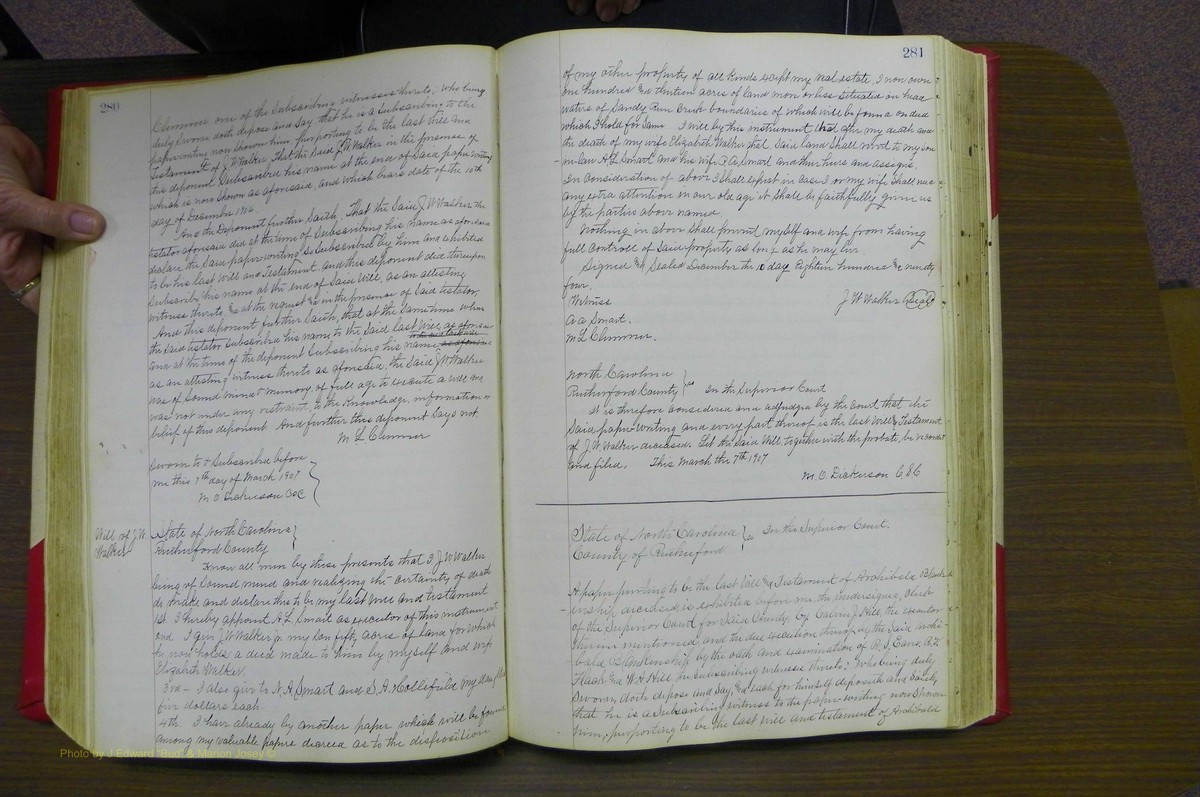 280
Clemmer one of the Subscribing witnesses thereto, who being
duly Sworn doth depose and Say, that he is a Subscribing to the
paper writing now Shown him, purporting to be the last Will and
Testament of J W Walker. That the Said J W Walker in the presense of
this deponent Subscribed his name at the end of Said paper writing
which is now Shown as aforesaid, and which bears date of the 10th
day of December
And the Deponent further Saith, That the Said J W Walker the
testator aforesaid did at the time of Subscribing his name as aforesaid
declare the Said paper writing So Subscribed by him and exhibited
to be his last Will and Testament and this deponent did thereupon
Subscribe his name at the end of Said Will, as an attesting
witness thereto, & at the request & in the presense of Said testator.
And this deponent further Saith, that at the Same time when
the Said testator Subscribed his name to the Said last Will, as aforesaid
and at the time of the deponent Subscribing his name
as an attesting witness thereto as aforesaid, the Said J W Walker
was of Sound mind & memory, of full age to execute a will and
was not under any restraint, to the Knowledge, information or
belief of this deponent And further this deponent Says not.
M L Clemmer
Sworn to & Subscribed before
me this 7th day of March 1907
M O Dickerson CSC
Will of J. W.
Walker
State of North Carolina
Rutherford County
Know all men by these presents that I J W Walker
being of Sound mind and realizing the certainty of death
do make and declare this to be my last Will and testament
1st I hereby appoint A L Smart as executor of this instrument
2nd I give J W Walker Jr. my Son fifty acres of land for which
he now holds a deed made to him by myself and wife
Elizabeth Walker.
3rd - I also give to N. A. Smart and S. A. Hollifield my
five dollars each.
4th I have already by another paper which will be found
among my valuable papers decreed as to the disposition
281
of my other property of all Kinds except my real estate, I now own
one hundred & thirteen acres of land more or less situated on head
waters of Sandy Run Creek boundaries of which will be found on deed
which I hold for Same I will by this instrument that after my death and
the death of my wife Elizabeth Walker that Said land Shall revert to my son
in-law A L Smart and his wife Smart and their heirs and assigns.
In consideration of above I Shall expect in case I or my wife Shall need
any extra attention in our old age it Shall be faithfully given us
by the parties above named.
Nothing in above Shall prevent myself and wife from having
full controll of Said property as long as he may live.
Signed & Sealed December the 10 day Eighteen hundred & ninety
four.
Witness
J W Walker (Seal)
A A Smart.
M L Clemmer.
North Carolina
Rutherford County } In the Superior Court
It is therefore considered and adjudged by the Court that the
Said paper-writing and every part thereof is the last Will & Testament
of J. W. Walker deceased. Let the Said Will, together with the probate, be recorded
and filed. This March the 7th 1907
M. O. Dickerson CSC
State of North Carolina } In the Superior Court.
County of Rutherford
A paper purporting to be the last Will & Testament of Archibald
deceased, is exhibited before me, the undersigned, Clerk
of the Superior Court for Said County, by Calvin J. Hill the executor
therein mentioned, and the due execution thereof by the Said Archi-
bald by the oath and examination of
and W. H. Hill the Subscribing witnesses thereto; who being duly
Sworn, doth depose and Say, & each for himself deposeth and Saith,
that he is a Subscribing witness to the paper writing now Shown
him, purporting to be the last Will and testament of Archibald
Photo by J Edward "Bud" & Marion Josey ©